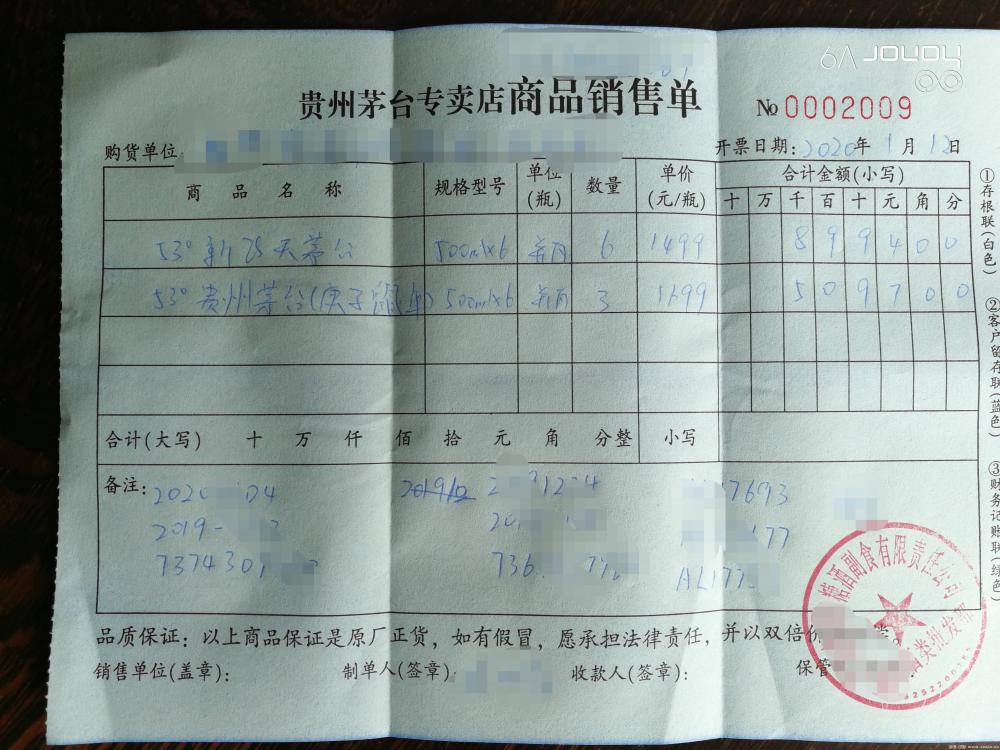 贵州茅台专卖店商品销售单
№ 0002009
购货单位
开票日期：2020年1月12日
商品名称 规格型号 单位(瓶) 数量 单价(元/瓶) 合计金额(小写)
十 万 千 百 十 元 角 分
53° 新飞天茅台 500ml×6 瓶 6 1499 8 9 9 4 0 0
53° 贵州茅台(庚子鼠年) 500ml×6 瓶 3 1699 5 0 9 7 0 0
合计(大写) 十 万 仟 佰 拾 元 角 分整 小写
备注：2020 04 2019/12 2 9 12 4 7693
2019- 20 177
7374301 736 AL177
品质保证：以上商品保证是原厂正货，如有假冒，愿承担法律责任，并以双倍
销售单位(盖章)： 制单人(签章) 收款人(签章)： 保管
①存根联(白色) ②客户留存联(蓝色) ③财务记账联(绿色)
副食有限责任公司
酒类批发部
JOYOY